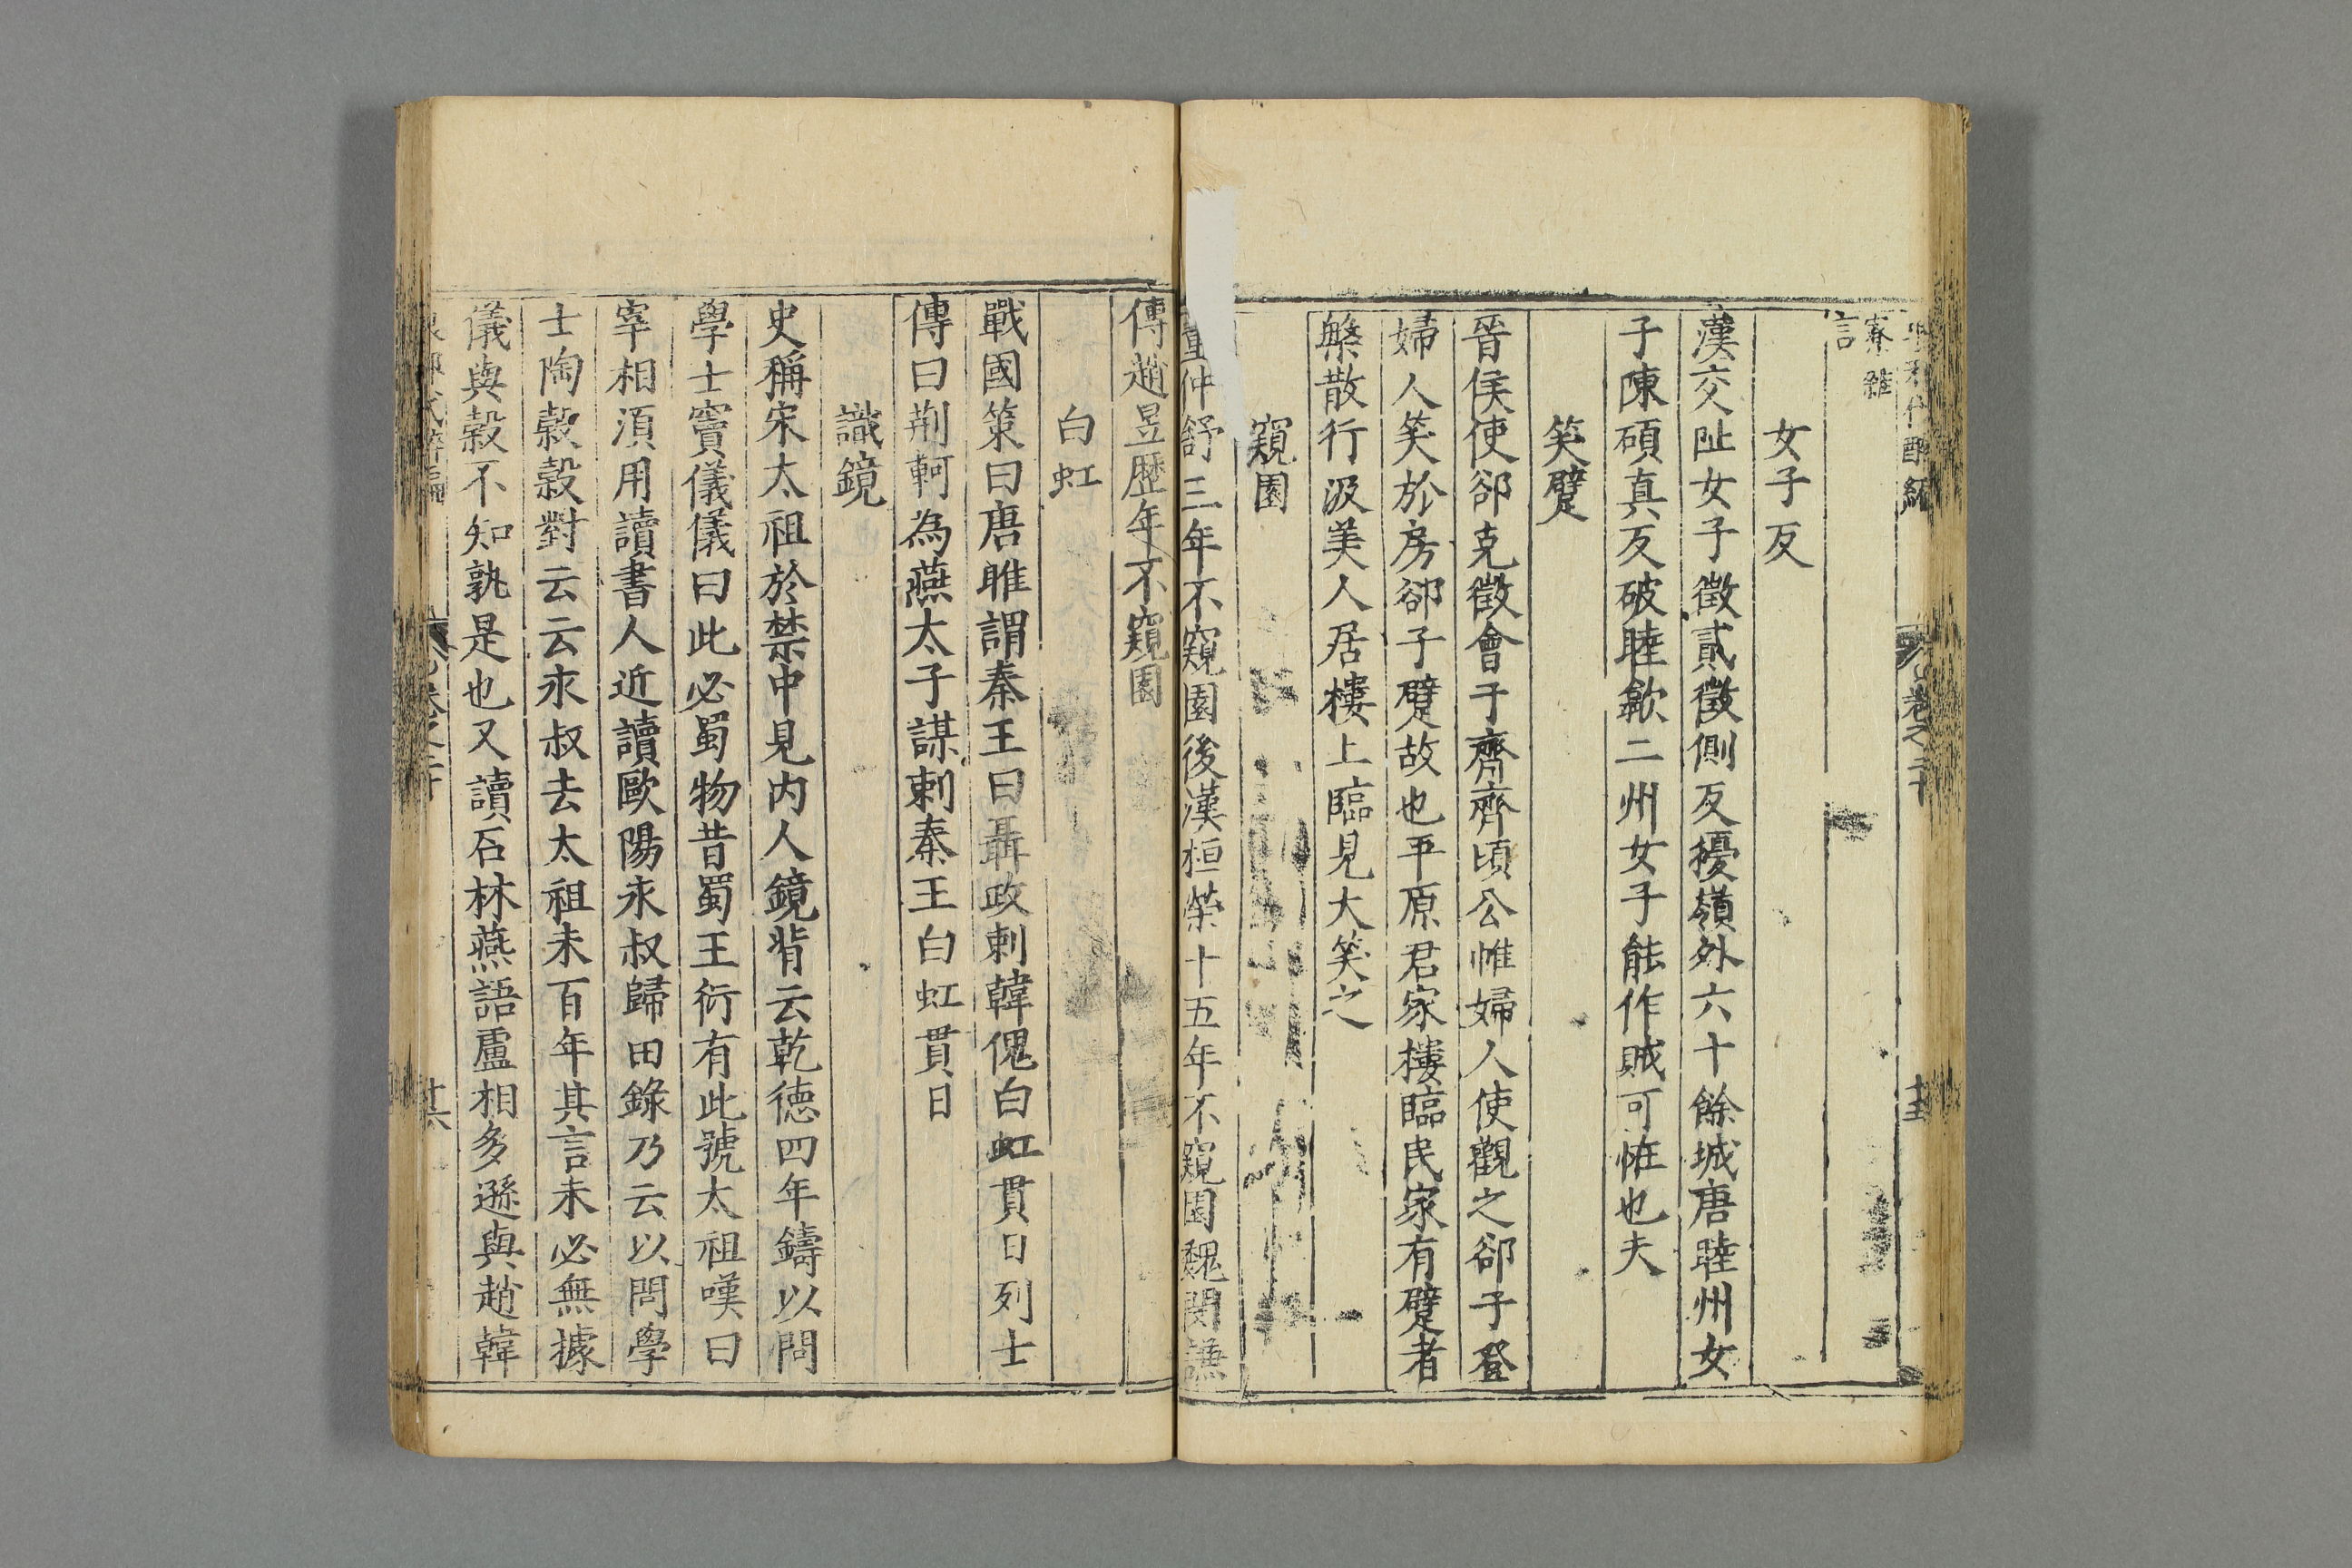 寮雜
言
女子反
漢交阯女子徵貳徵側反擾嶺外六十餘城唐睦州女
子陳碩真反破睦歙二州女子能作賊可恠也夫
笑躄
晉侯使郤克徵會于齊齊頃公帷婦人使觀之郤子登
婦人笑於房郤子躄故也平原君家樓臨民家有躄者
槃散行汲美人居樓上臨見大笑之
窺園
董仲舒三年不窺園後漢桓榮十五年不窺園魏閔謙
傳趙昱歷年不窺園
白虹
戰國策曰唐睢謂秦王曰聶政刺韓傀白虹貫日列士
傳曰荆軻為燕太子謀刺秦王白虹貫日
識鏡
史稱宋太祖於禁中見内人鏡背云乾德四年鑄以問
學士竇儀儀曰此必蜀物昔蜀王衍有此號太祖嘆曰
宰相湏用讀書人近讀歐陽永叔歸田錄乃云以問學
士陶穀穀對云云永叔去太祖未百年其言未必無據
儀與穀不知孰是也又讀石林燕語盧相多遜與趙韓
卷之二十
十五
十六